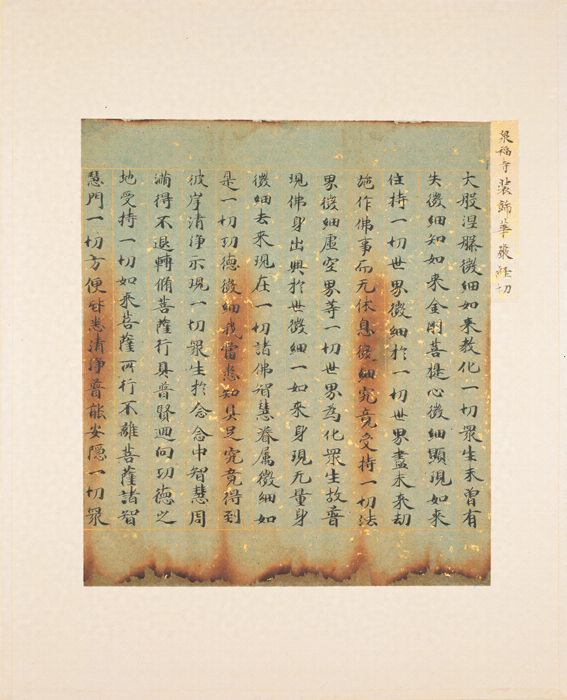 泉福寺装飾華厳経切
大般涅槃微細如来教化一切衆生未曽有
失微細知如来金剛菩提心微細顕現如来
住持一切世界微細於一切世界盡未来劫
施作佛事而无休息微細究竟受持一切法
界微細虚空界等一切世界為化衆生故普
現佛身出興於世微細一如来身現无量身
微細去来現在一切諸佛智慧眷属微細如
是一切功徳微細我當悉知具足究竟得到
彼岸清浄示現一切衆生於念念中智慧周
満得不退轉脩菩薩行具普賢迴向功徳之
地受持一切如来菩薩所行不離菩薩諸智
慧門一切方便皆悉清浄普能安隠一切衆